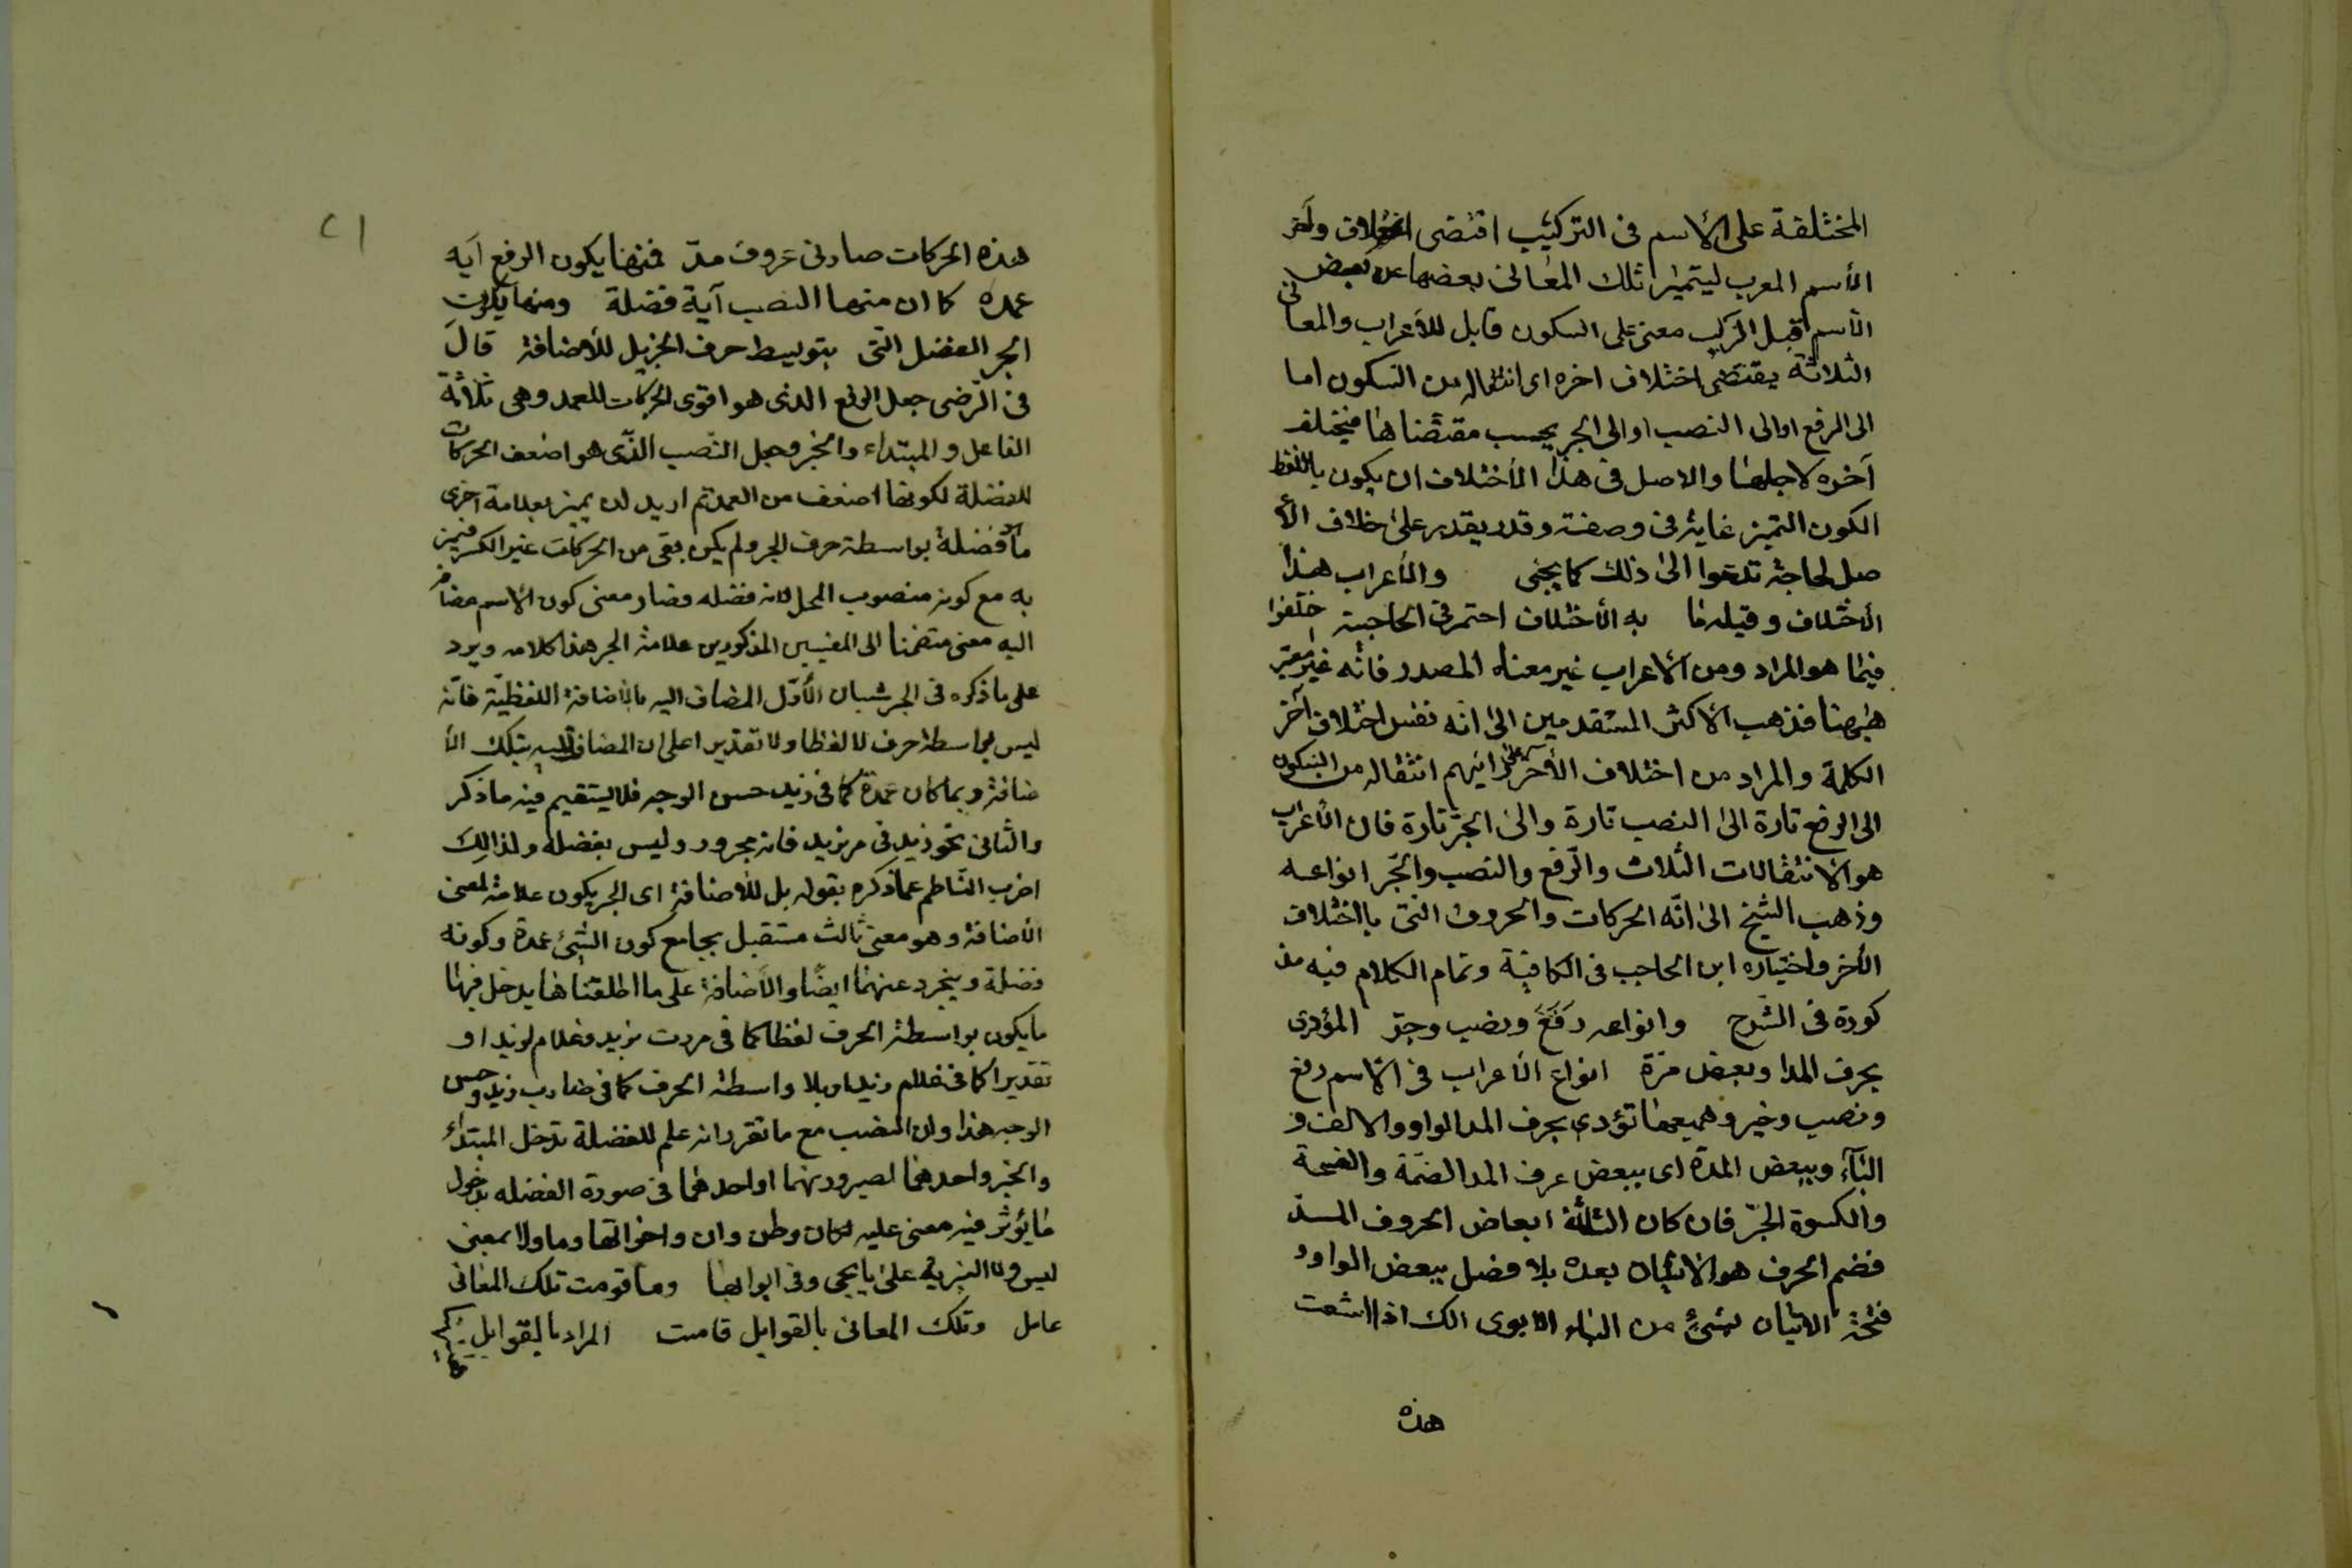 المختلفة على الأسم فى التركيب اقتضى اختلاف وآخر
الأسم المعرب ليتميز تلك المعانى بعضها عن بعض
الأسم قبل التركيب معنى على السكون قابل للأعراب والمعانى
الثلاثة يقتضى اختلاف اخره اى انتقاله من السكون اما
الى الرفع اوالى النصب اوالى الجر بحسب مقتضاها فيختلف
آخره لاجلها والاصل فى هذا الأختلاف ان يكون باللفظ
الكون التميز غاية فى وصفته وقد يقدر على خلاف الأ
صل لحاجة تدعوا الى ذلك كما يجئى والأعراب هذا
الأختلاف وقيل ما به الأختلاف احتمر فى الحاجبية اختلفوا
فيما هو المراد ومن الأعراب غير معناه المصدر فانه غير معتبر
هيهنا فذهب الأكثر المستقدمين الى انه نفس اختلاف آخر
الكلمة والمراد من اختلاف الأخر على رائيهم انتقاله من السكون
الى الرفع تارة الى النصب تارة والى الجر تارة فان الأعراب
هو الأنتقالات الثلاث والرفع والنصب والجر انواعه
وذهب الشيخ الى انه الحركات والحروف التى باختلاف
الأخر واختياره ابن الحاجب فى الكافية وتمام الكلام فيه مذ
كورة فى الشرح وانواعه رفع ونصب وجر المؤدى
بحرف المدا وبعض مرة انواع الأعراب فى الأسم رفع
ونصب وخير وهميعها تؤدى بحرف المد الواو والالف و
الياء وببعض المدة اى ببعض عرف المد الضمة والفتحة
والكسرة الجر فان كان الثلثة ابعاض الحروف المد
فضم الحرف هو الأتيان بعده بلا فصل ببعض الواو و
فتحة الاتيان بشئ من الياء الابوى الك اذا اشعت
هذه
٢١
هذه الحركات صارت عروف مد فمنها يكون الرفع آيه
عمدة كما ان منها النصب آية فضلة ومنها يكون
الجر الفضل التى بتوسيط حرف الجر بل للأضافة قال
فى الرضى جعل الرفع الذى هو اقوى الحركات للعمد وهى ثلاثة
الفاعل والمبتداء والخبر وجعل النصب الذى هو اضعف الحركات
للفضلة لكونها اضعف من العمد ثم اريد ان يميز بعلامة اخرى
ما فضلة بواسطة حرف الجر ولم يكن بقى من الحركات غير الكسر فيميز
به مع كونه منصوب المحل لانه فضله فصار معنى كون الاسم مضاف
اليه معنى متضمنا الى المفيين المذكورين علامة الجر هذا كلامه ويرد
على ما ذكره فى الجر شيان الأول المضاف اليه بالأضافة اللفظية فانه
ليس بواسطة حرف لا لفظا ولا تقديرا على ان المضاف اليه بتلك الأ
ضافة ربما كان عمدة كما فى زيد حسن الوجه فلا يستقيم فيه ما ذكر
والثانى نحو زيد فى مر بزيد فانه مجرور وليس بفضله ولذالك
اضرب الناظم عما ذكره بقوله بل للأضافة اى الجر يكون علامة لمعنى
الأضافة وهو معنى ثالث مستقبل بجامع كون الشئ عمدة وكونه
فضلة ويتجرد عنهما ايضا والأضافة على ما اطلقناها يدخل فيها
ما يكون بواسطة الحرف لفظا كما فى مررت بزيد وغلام لزيد او
تقديرا كما فى غلام زيد وبلا واسطة الحرف كما فى ضارب زيد وحسن
الوجه هذا وان النصب مع ما تقرر انه علم للفضلة تدخل المبتداء
والخبر واحدهما لصيرورتهما او احدهما فى صورة الفضله بدخول
ما يؤثر فيه معنى عليه لكان وظن وان واخواتها وما ولا بمعنى
ليس ولا التبرية على ما يجئ وفى ابوابها وما قومت تلك المعانى
عامل وتلك المعانى بالقوابل قامت المراد بالقوابل